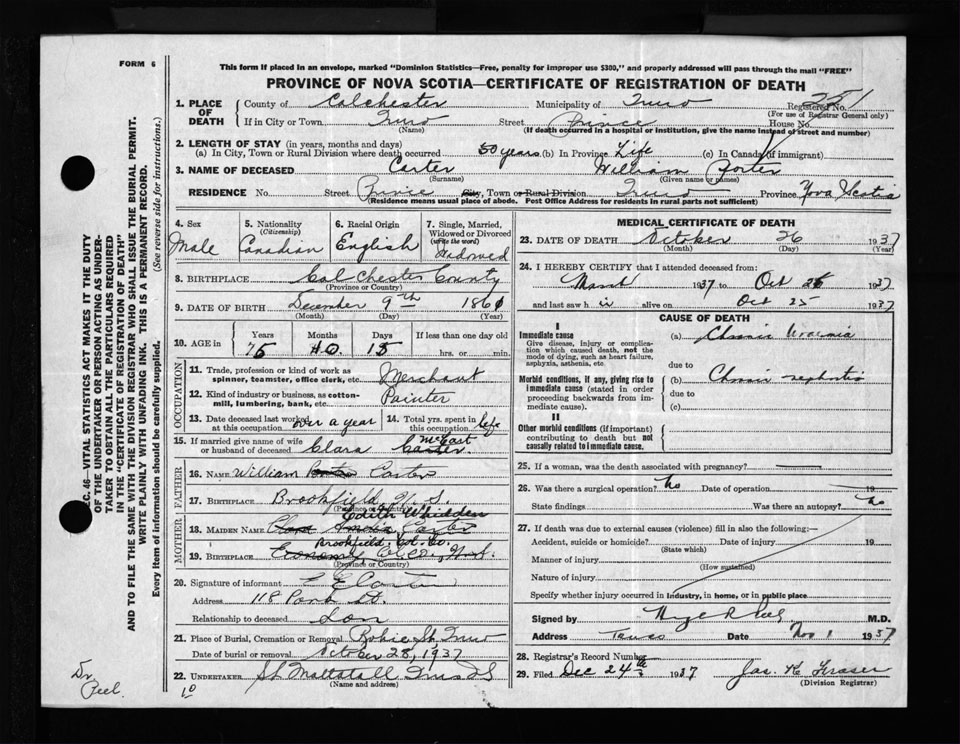 FORM 6
This form if placed in an envelope, marked "Dominion Statistics—Free, penalty for improper use $300," and properly addressed will pass through the mail "FREE"
PROVINCE OF NOVA SCOTIA—CERTIFICATE OF REGISTRATION OF DEATH
1. PLACE OF DEATH
County of Colchester Municipality of Truro Registered No. 251
(For use of Registrar General only)
If in City or Town Truro Street Prince House No.
(Name) (If death occurred in a hospital or institution, give the name instead of street and number)
2. LENGTH OF STAY (in years, months and days)
(a) In City, Town or Rural Division where death occurred 50 years (b) In Province Life (c) In Canada (if immigrant)
3. NAME OF DECEASED Carter William Porter
(Surname) (Given name or names)
RESIDENCE No. Street Prince City, Town or Rural Division Truro Province Nova Scotia
(Residence means usual place of abode. Post Office Address for residents in rural parts not sufficient)
4. Sex
Male
5. Nationality
(Citizenship)
Canadian
6. Racial Origin
English
7. Single, Married, Widowed or Divorced
(write the word)
Widowed
8. BIRTHPLACE Colchester County
(Province or Country)
9. DATE OF BIRTH December 9th 1861
(Month) (Day) (Year)
10. AGE in
Years Months Days If less than one day old
75 10 15 hrs. or min.
OCCUPATION
11. Trade, profession or kind of work as spinner, teamster, office clerk, etc. Merchant
12. Kind of industry or business, as cotton-mill, lumbering, bank, etc. Painter
13. Date deceased last worked at this occupation over a year
14. Total yrs. spent in this occupation life
15. If married give name of wife or husband of deceased Clara Carter McCart
FATHER
16. NAME William Porter Carter
17. BIRTHPLACE Brookfield, N. S.
(Province or Country)
MOTHER
Edith Whidden
18. MAIDEN NAME Carter
Brookfield, Col. Co.
19. BIRTHPLACE Economy, Col. Co., N.S.
(Province or Country)
20. Signature of informant L E Carter
Address 118 Park St.
Relationship to deceased Son
21. Place of Burial, Cremation or Removal Robie St. Truro
Date of burial or removal October 28, 1937
22. UNDERTAKER Mattatall Truro N S
(Name and address)
MEDICAL CERTIFICATE OF DEATH
23. DATE OF DEATH October 26 1937
(Month) (Day) (Year)
24. I HEREBY CERTIFY that I attended deceased from:
March 1937 to Oct 26 1937
and last saw h im alive on Oct 25 1937
CAUSE OF DEATH
I
Immediate cause
Give disease, injury or complication which caused death, not the mode of dying, such as heart failure, asphyxia, asthenia, etc
(a) Chronic Uraemia
due to
Morbid conditions, if any, giving rise to immediate cause (stated in order proceeding backwards from immediate cause).
(b) Chronic nephritis
due to
(c)
II
Other morbid conditions (if important) contributing to death but not causally related to immediate cause.
25. If a woman, was the death associated with pregnancy?
26. Was there a surgical operation? No Date of operation 19
State findings Was there an autopsy? No
27. If death was due to external causes (violence) fill in also the following:—
Accident, suicide or homicide? Date of injury 19
(State which)
Manner of injury
(How sustained)
Nature of injury
Specify whether injury occurred in industry, in home, or in public place
Signed by M.D.
Address Truro Date Nov 1 1937
28. Registrar's Record Number
29. Filed Dec 24th 1937 Jas. H. Fraser
(Division Registrar)
R.C. 46—VITAL STATISTICS ACT MAKES IT THE DUTY
OF THE UNDERTAKER OR PERSON ACTING AS UNDER-
TAKER TO OBTAIN ALL THE PARTICULARS REQUIRED
IN THE "CERTIFICATE OF REGISTRATION OF DEATH"
AND TO FILE THE SAME WITH THE DIVISION REGISTRAR WHO SHALL ISSUE THE BURIAL PERMIT.
WRITE PLAINLY WITH UNFADING INK. THIS IS A PERMANENT RECORD.
Every item of information should be carefully supplied. (See reverse side for instructions.)
Dr
Peel.
10